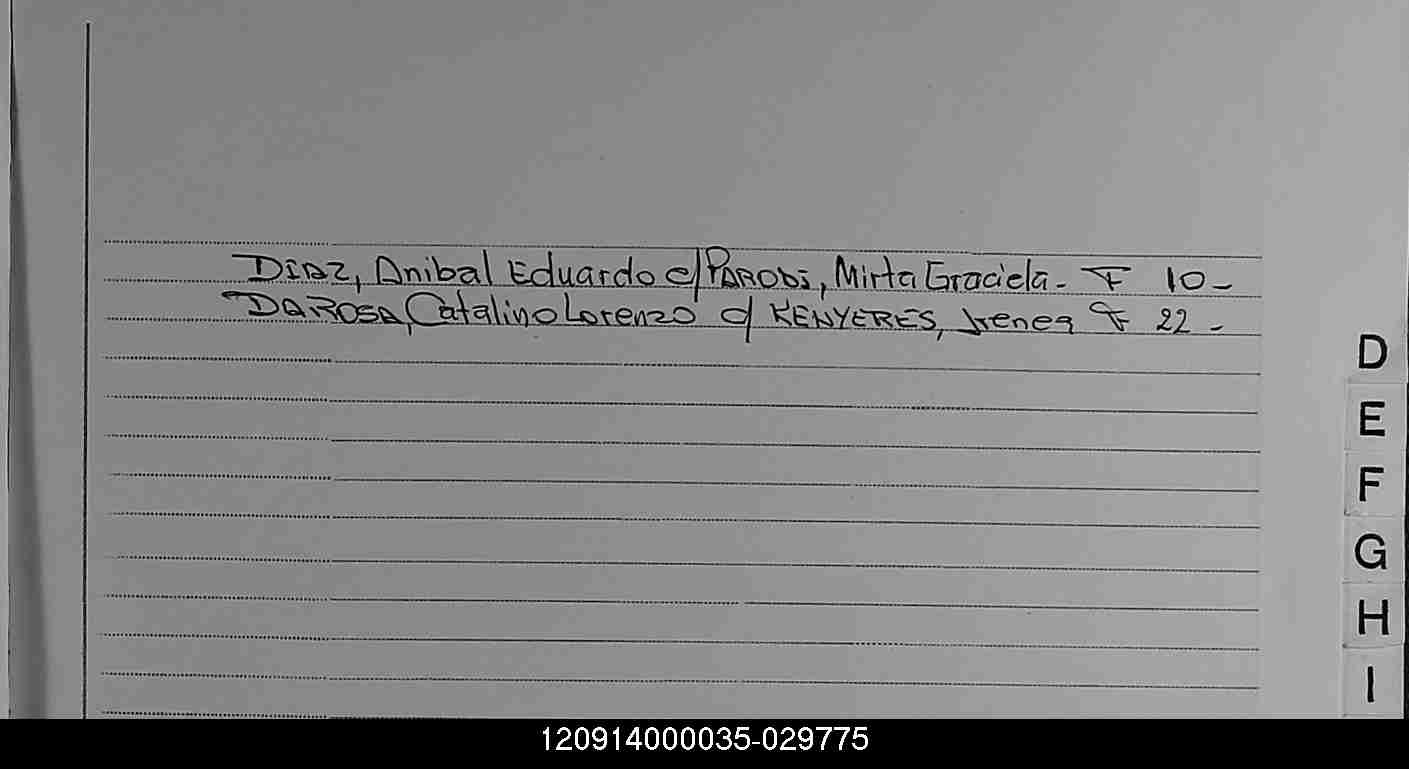 DIAZ, Anibal Eduardo c/ PARODI, Mirta Graciela - F 10 -
DA ROSA, Catalino Lorenzo c/ KENYERES, Irenea F 22 -
D
E
F
G
H
I
120914000035-029775